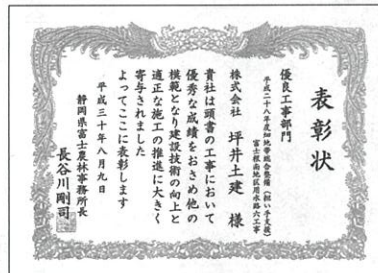 表彰状
優良工事部門
平成二十八年度畑地帯総合整備(担い手支援)
富士根南地区用水路六工事
株式会社 坪井土建 様
貴社は頭書の工事において
優秀な成績をおさめ他の
模範となり建設技術の向上と
適正な施工の推進に大きく
寄与されました
よってここに表彰します
平成三十年八月九日
静岡県富士農林事務所長
長谷川剛司